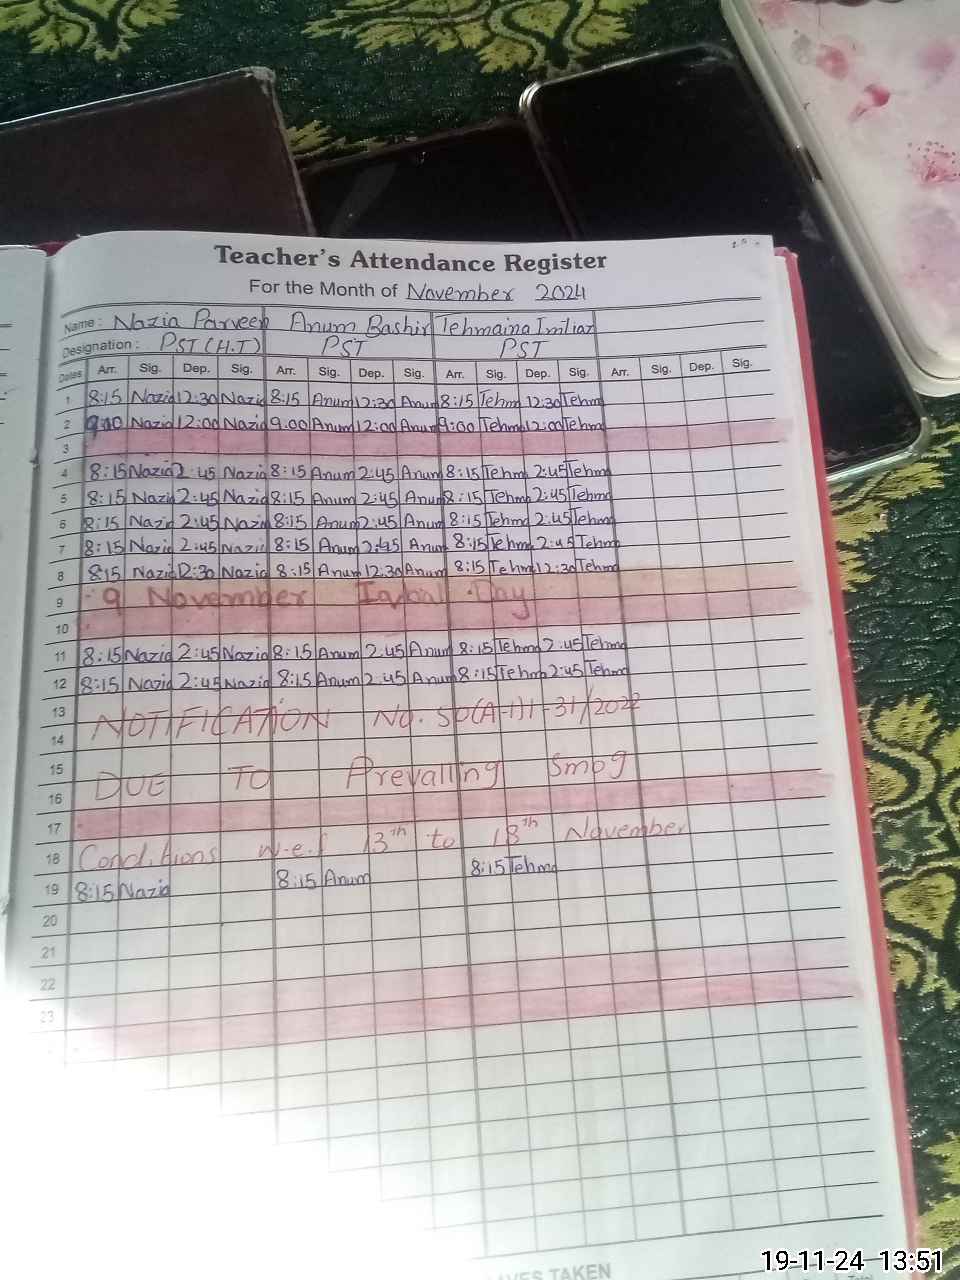 Teacher's Attendance Register
For the Month of November 2024
Name: Nazia Parveen Anum Bashir Tehmaina Imtiaz
Designation: PST (H.T) PST PST
Dates Arr. Sig. Dep. Sig. Arr. Sig. Dep. Sig. Arr. Sig. Dep. Sig. Arr. Sig. Dep. Sig.
1 8:15 Nazia 12:30 Nazia 8:15 Anum 12:30 Anum 8:15 Tehma 12:30 Tehma
2 Nazia 12:00 Nazia 9.00 Anum 12:00 Anum 9:00 Tehma 12:00 Tehma
3
4 8:15 Nazia 2:45 Nazia 8:15 Anum 2:45 Anum 8:15 Tehma 2:45 Tehma
5 8:15 Nazia 2:45 Nazia 8:15 Anum 2:45 Anum 8:15 Tehma 2:45 Tehma
6 8:15 Nazia 2:45 Nazia 8:15 Anum 2:45 Anum 8:15 Tehma 2:45 Tehma
7 8:15 Nazia 2:45 Nazia 8:15 Anum 2:45 Anum 8:15 Tehma 2:45 Tehma
8 8:15 Nazia 12:30 Nazia 8:15 Anum 12:30 Anum 8:15 Tehma 12:30 Tehma
9 9 November Iqbal Day
10
11 8:15 Nazia 2:45 Nazia 8:15 Anum 2:45 Anum 8:15 Tehma 2:45 Tehma
12 8:15 Nazia 2:45 Nazia 8:15 Anum 2:45 Anum 8:15 Tehma 2:45 Tehma
13 NOTIFICATION No. SO(A-1)1-31/2022
14
15 DUE TO Prevalling Smog
16
17
18 Conditions w.e.f 13th to 18th November
19 8:15 Nazia 8:15 Anum 8:15 Tehma
20
21
22
23
TAKEN
19-11-24 13:51